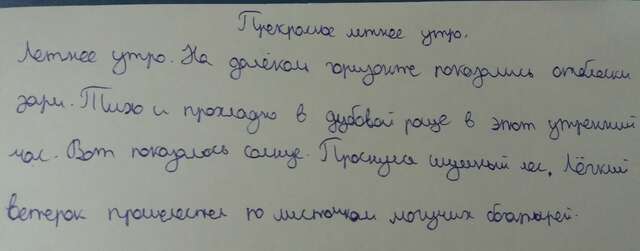 Прекрасное летнее утро.
Летнее утро. На далёком горизонте показались отблески
зари. Тихо и прохладно в дубовой роще в этот утренний
час. Вот показалось солнце. Проснулся шумный лес. Лёгкий
ветерок прошелестел по листочкам могучих богатырей.